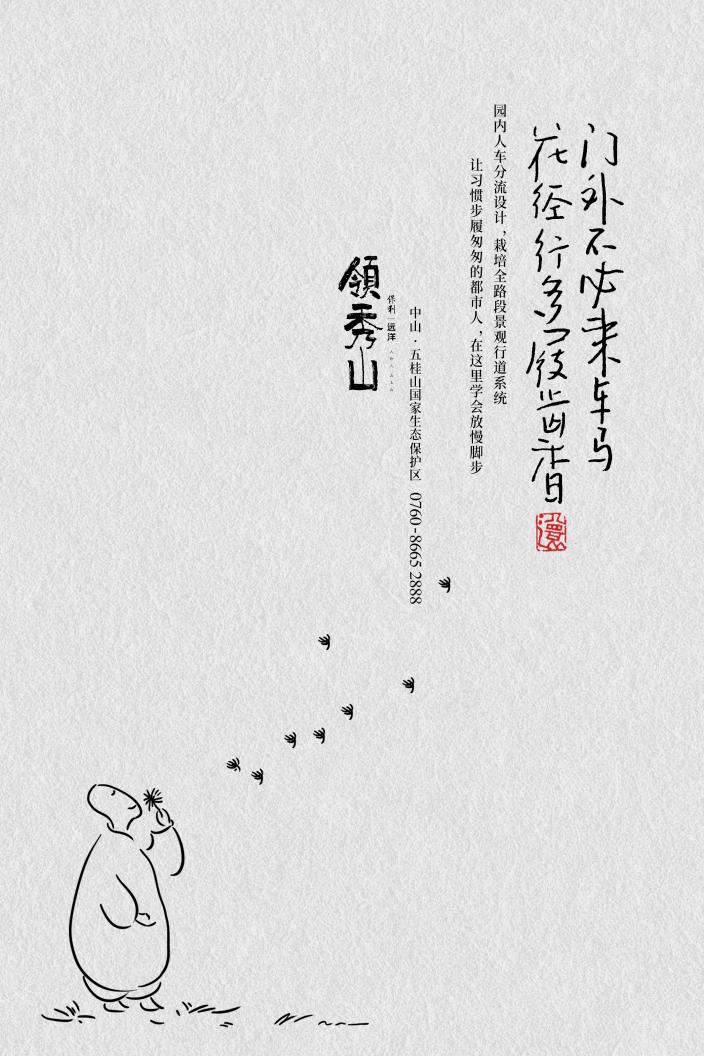 门外不必来车马
花径行多屐齿香
园内人车分流设计，栽培全路段景观行道系统
让习惯步履匆匆的都市人，在这里学会放慢脚步
中山·五桂山国家生态保护区 0760-8665 2888
保利 远洋
領秀山